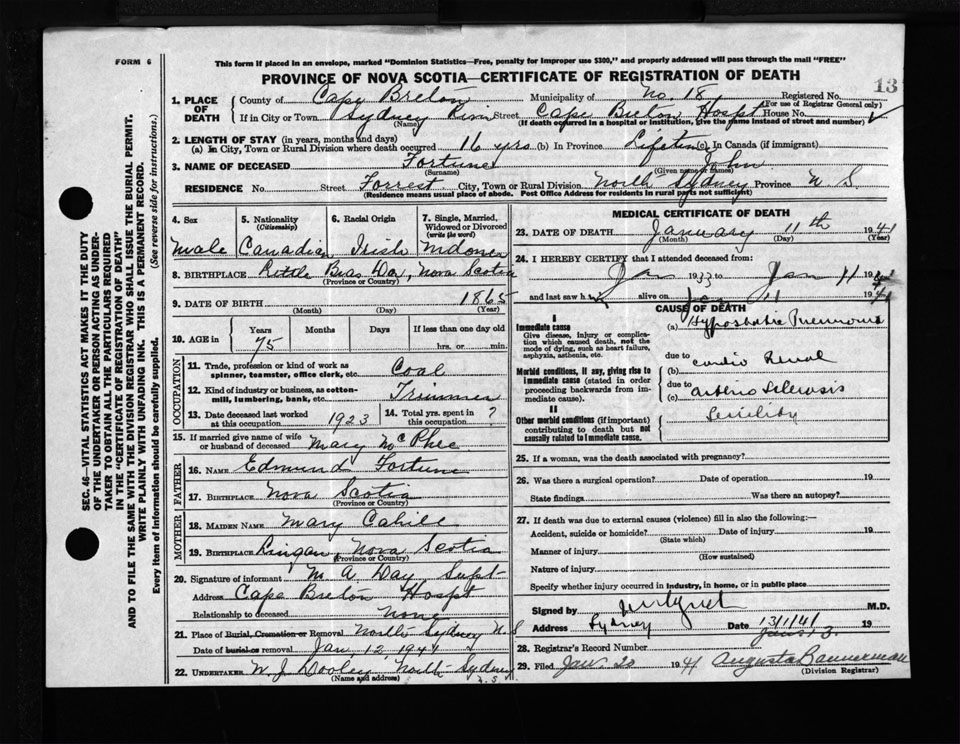 FORM 6
This form if placed in an envelope, marked "Dominion Statistics—Free, penalty for improper use $300," and properly addressed will pass through the mail "FREE"
PROVINCE OF NOVA SCOTIA—CERTIFICATE OF REGISTRATION OF DEATH
13
1. PLACE OF DEATH County of Cape Breton Municipality of No. 18 Registered No.
(For use of Registrar General only)
If in City or Town Sydney River Street Cape Breton Hospt House No.
(Name) (If death occurred in a hospital or institution, give the name instead of street and number)
2. LENGTH OF STAY (in years, months and days)
(a) In City, Town or Rural Division where death occurred 16 yrs (b) In Province Lifetime (c) In Canada (if immigrant)
3. NAME OF DECEASED Fortune John
(Surname) (Given name or names)
RESIDENCE No. Street Forrest City, Town or Rural Division North Sydney Province N S
(Residence means usual place of abode. Post Office Address for residents in rural parts not sufficient)
4. Sex 5. Nationality (Citizenship) 6. Racial Origin 7. Single, Married, Widowed or Divorced (write the word)
Male Canadian Irish
8. BIRTHPLACE Little Bras Dor, Nova Scotia
(Province or Country)
9. DATE OF BIRTH 1865
(Month) (Day) (Year)
10. AGE in Years Months Days If less than one day old
75 hrs. or min.
OCCUPATION
11. Trade, profession or kind of work as spinner, teamster, office clerk, etc. Coal
12. Kind of industry or business, as cotton-mill, lumbering, bank, etc. Trimmer
13. Date deceased last worked at this occupation 1923 14. Total yrs. spent in this occupation ?
15. If married give name of wife or husband of deceased Mary McPhee
FATHER
16. NAME Edmund Fortune
17. BIRTHPLACE Nova Scotia
(Province or Country)
MOTHER
18. MAIDEN NAME Mary Cahill
19. BIRTHPLACE Lingan, Nova Scotia
(Province or Country)
20. Signature of informant M A Day Supt
Address Cape Breton Hospt
Relationship to deceased None
21. Place of Burial, Cremation or Removal North Sydney N.S
Date of burial or removal Jan. 12, 1941
22. UNDERTAKER W. J. Dooley, North Sydney N.S
(Name and address)
MEDICAL CERTIFICATE OF DEATH
23. DATE OF DEATH January 11th 1941
(Month) (Day) (Year)
24. I HEREBY CERTIFY that I attended deceased from:
Jan 1933 to Jan 11 1941
and last saw h alive on Jan 11 1941
CAUSE OF DEATH
I
Immediate cause
Give disease, injury or complication which caused death, not the mode of dying, such as heart failure, asphyxia, asthenia, etc.
(a) Hypostatic Pneumonia
due to
Morbid conditions, if any, giving rise to immediate cause (stated in order proceeding backwards from immediate cause).
(b) cardio Renal
due to
(c) arterio Sclerosis
II
Other morbid conditions (if important) contributing to death but not causally related to immediate cause.
Senility
25. If a woman, was the death associated with pregnancy?
26. Was there a surgical operation? Date of operation 19
State findings Was there an autopsy?
27. If death was due to external causes (violence) fill in also the following:—
Accident, suicide or homicide? Date of injury 19
(State which)
Manner of injury
(How sustained)
Nature of injury
Specify whether injury occurred in industry, in home, or in public place
Signed by M.D.
Address Sydney Date 13/1/41 19
28. Registrar's Record Number
29. Filed Jan. 20 1941 Augusta Bannerman
(Division Registrar)
SEC. 46—VITAL STATISTICS ACT MAKES IT THE DUTY
OF THE UNDERTAKER OR PERSON ACTING AS UNDER-
TAKER TO OBTAIN ALL THE PARTICULARS REQUIRED
IN THE "CERTIFICATE OF REGISTRATION OF DEATH"
AND TO FILE THE SAME WITH THE DIVISION REGISTRAR WHO SHALL ISSUE THE BURIAL PERMIT.
WRITE PLAINLY WITH UNFADING INK. THIS IS A PERMANENT RECORD.
Every item of Information should be carefully supplied. (See reverse side for instructions.)